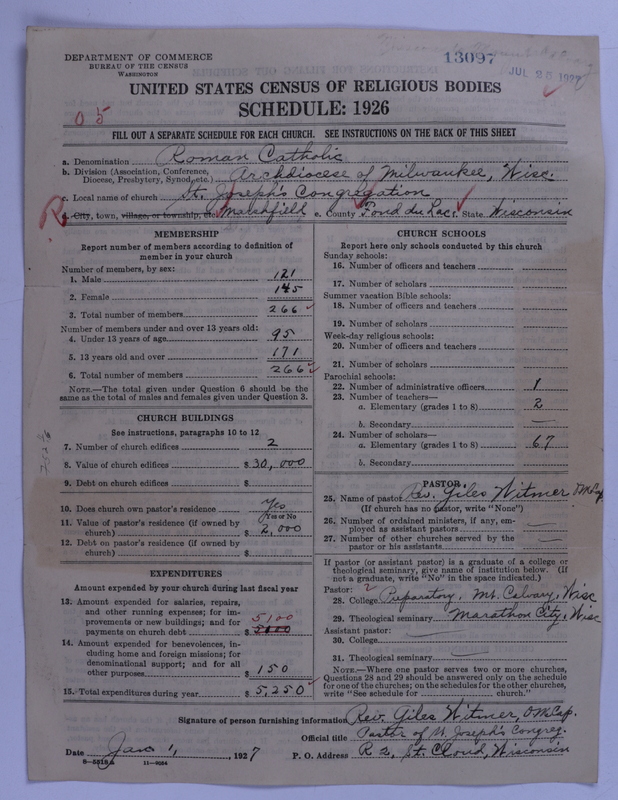 DEPARTMENT OF COMMERCE
BUREAU OF THE CENSUS
WASHINGTON
13097
JUL 25 1927
UNITED STATES CENSUS OF RELIGIOUS BODIES
SCHEDULE: 1926
05
FILL OUT A SEPARATE SCHEDULE FOR EACH CHURCH. SEE INSTRUCTIONS ON THE BACK OF THIS SHEET
a. Denomination Roman Catholic
b. Division (Association, Conference, Diocese, Presbytery, Synod, etc.) Archdiocese of Milwaukee, Wisc.
c. Local name of church St. Joseph's Congregation
R
d. City, town, village, or township, etc. Marshfield e. County Fond du Lac f. State Wisconsin
MEMBERSHIP
Report number of members according to definition of
member in your church
Number of members, by sex:
1. Male 121
2. Female 145
3. Total number of members 266
Number of members under and over 13 years old:
4. Under 13 years of age 95
5. 13 years old and over 171
6. Total number of members 266
NOTE.—The total given under Question 6 should be the
same as the total of males and females given under Question 3.
CHURCH BUILDINGS
See instructions, paragraphs 10 to 12
7. Number of church edifices 2
8. Value of church edifices $30,000
9. Debt on church edifices $
10. Does church own pastor's residence Yes
(Yes or No)
11. Value of pastor's residence (if owned by
church) $2,000
12. Debt on pastor's residence (if owned by
church) $
EXPENDITURES
Amount expended by your church during last fiscal year
13. Amount expended for salaries, repairs,
and other running expenses; for im-
provements or new buildings; and for 5100
payments on church debt $
14. Amount expended for benevolences, in-
cluding home and foreign missions; for
denominational support; and for all
other purposes $150
15. Total expenditures during year $5,250
CHURCH SCHOOLS
Report here only schools conducted by this church
Sunday schools:
16. Number of officers and teachers
17. Number of scholars
Summer vacation Bible schools:
18. Number of officers and teachers
19. Number of scholars
Week-day religious schools:
20. Number of officers and teachers
21. Number of scholars
Parochial schools:
22. Number of administrative officers 1
23. Number of teachers—
a. Elementary (grades 1 to 8) 2
b. Secondary —
24. Number of scholars—
a. Elementary (grades 1 to 8) 67
b. Secondary
PASTOR
25. Name of pastor Rev. Giles Witmer O.M.Cap.
(If church has no pastor, write "None")
26. Number of ordained ministers, if any, em-
ployed as assistant pastors —
27. Number of other churches served by the
pastor or his assistants —
If pastor (or assistant pastor) is a graduate of a college or
theological seminary, give name of institution below. (If
not a graduate, write "No" in the space indicated.)
Pastor: 2
28. College Preparatory, Mt. Calvary, Wisc
29. Theological seminary Marathon City, Wisc
Assistant pastor:
30. College —
31. Theological seminary —
NOTE.—Where one pastor serves two or more churches,
Questions 28 and 29 should be answered only on the schedule
for one of the churches; on the schedules for the other churches,
write "See schedule for ------ church."
Signature of person furnishing information Rev. Giles Witmer, O.M.Cap.
Official title Pastor of St. Joseph's Congreg.
Date Jan 1, 1927 P. O. Address R 2, St. Cloud, Wisconsin
8—5518a 11—9084